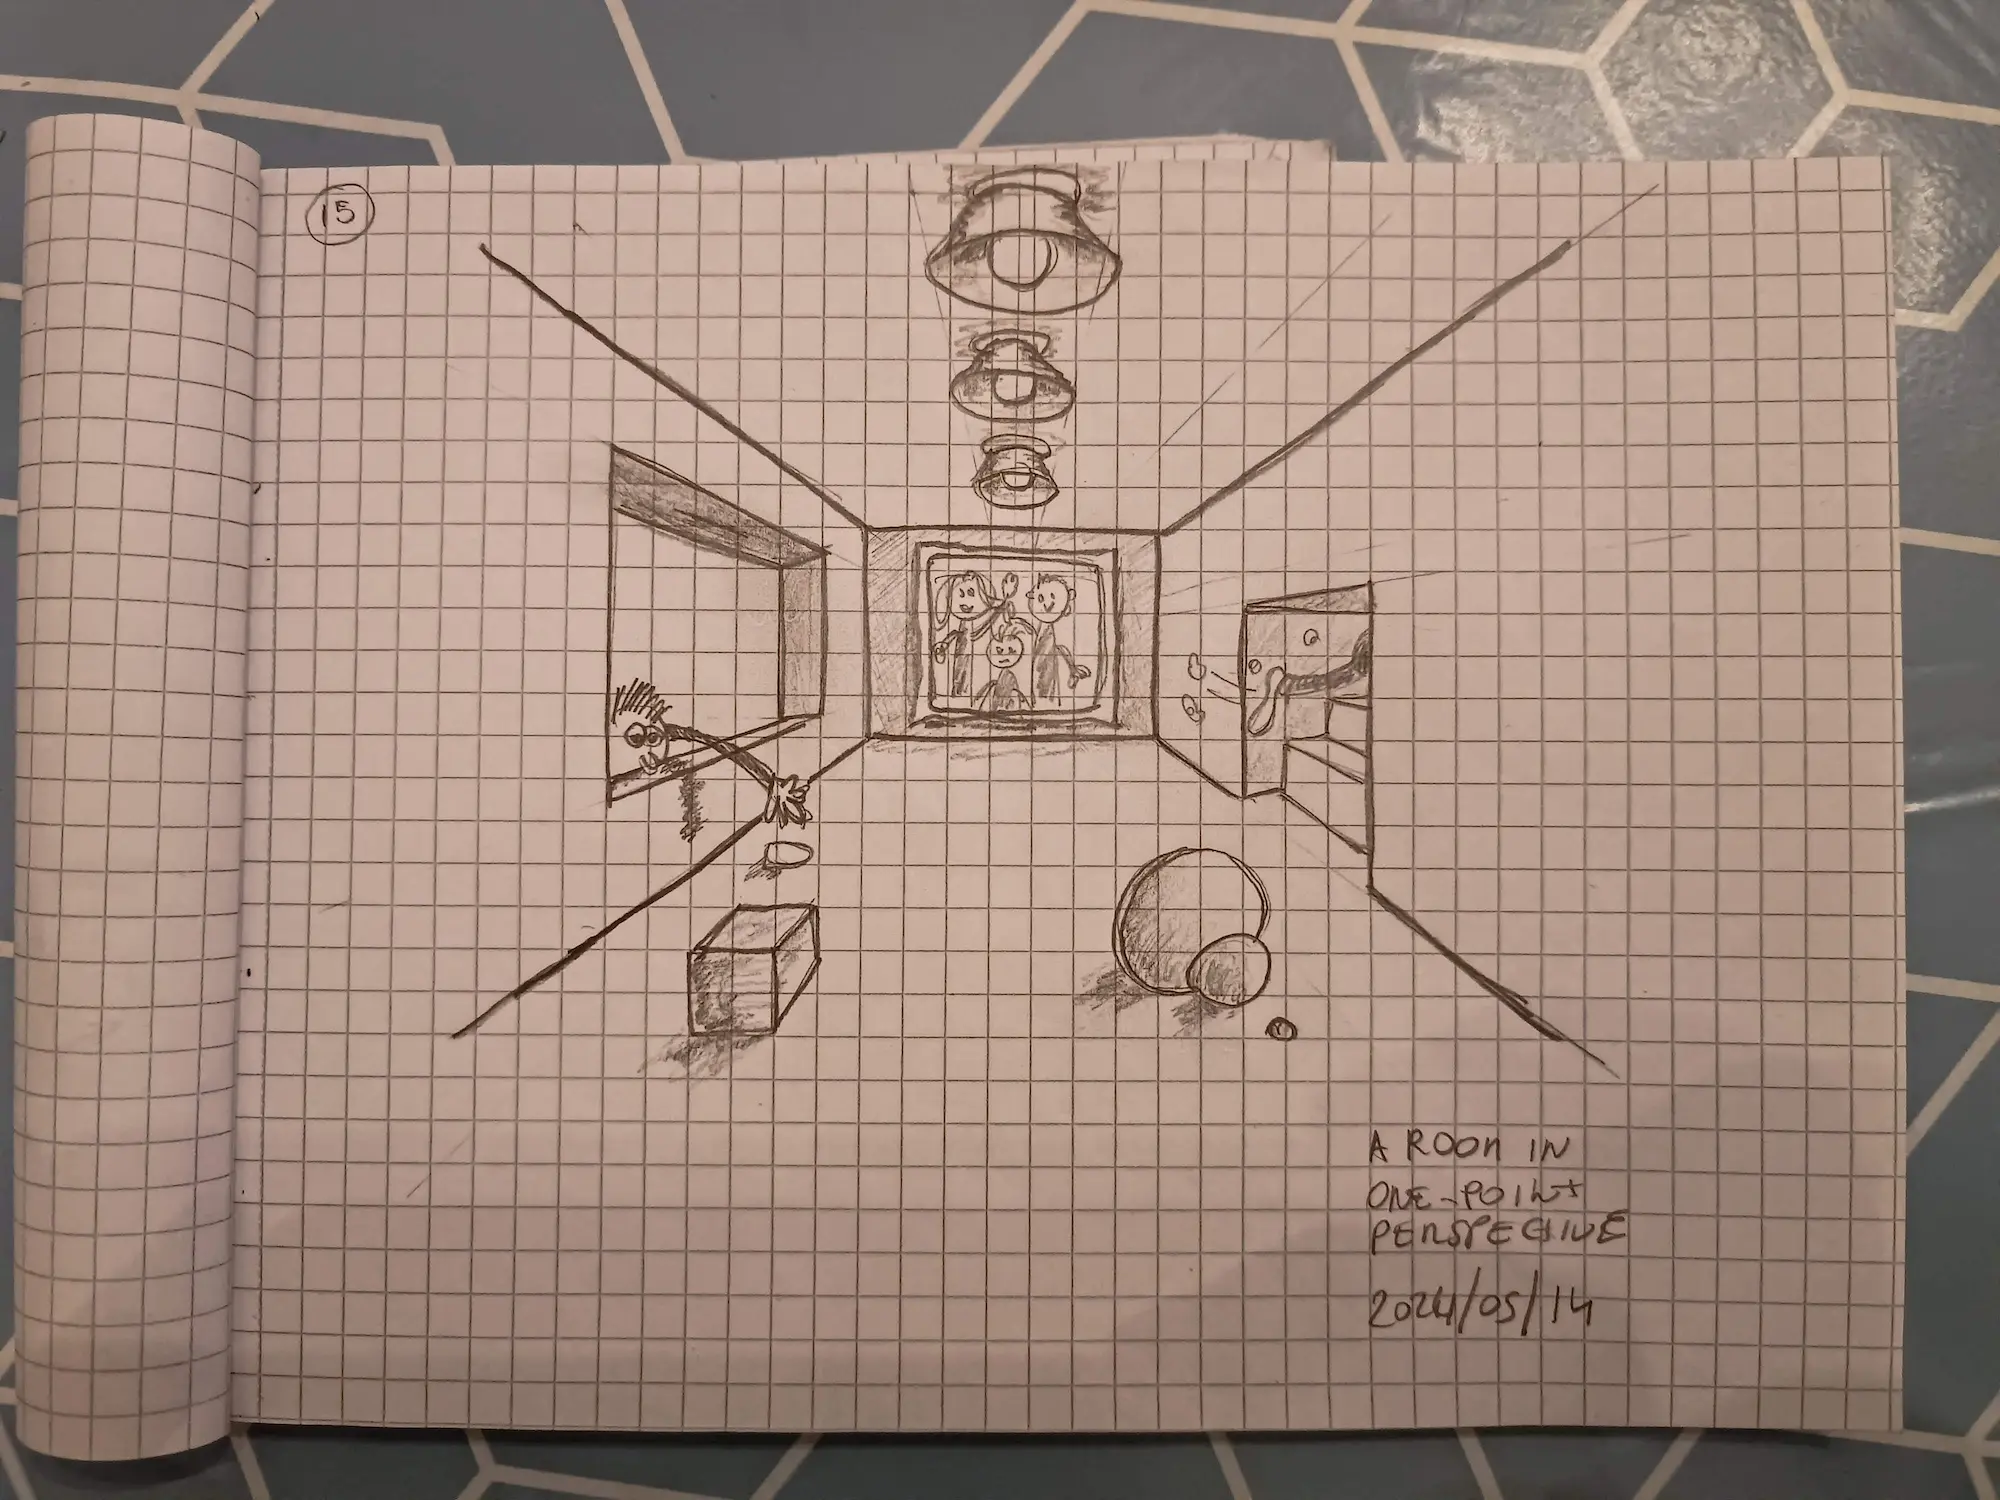 15
A ROOM IN
ONE-POINT
PERSPECTIVE
2024/05/14